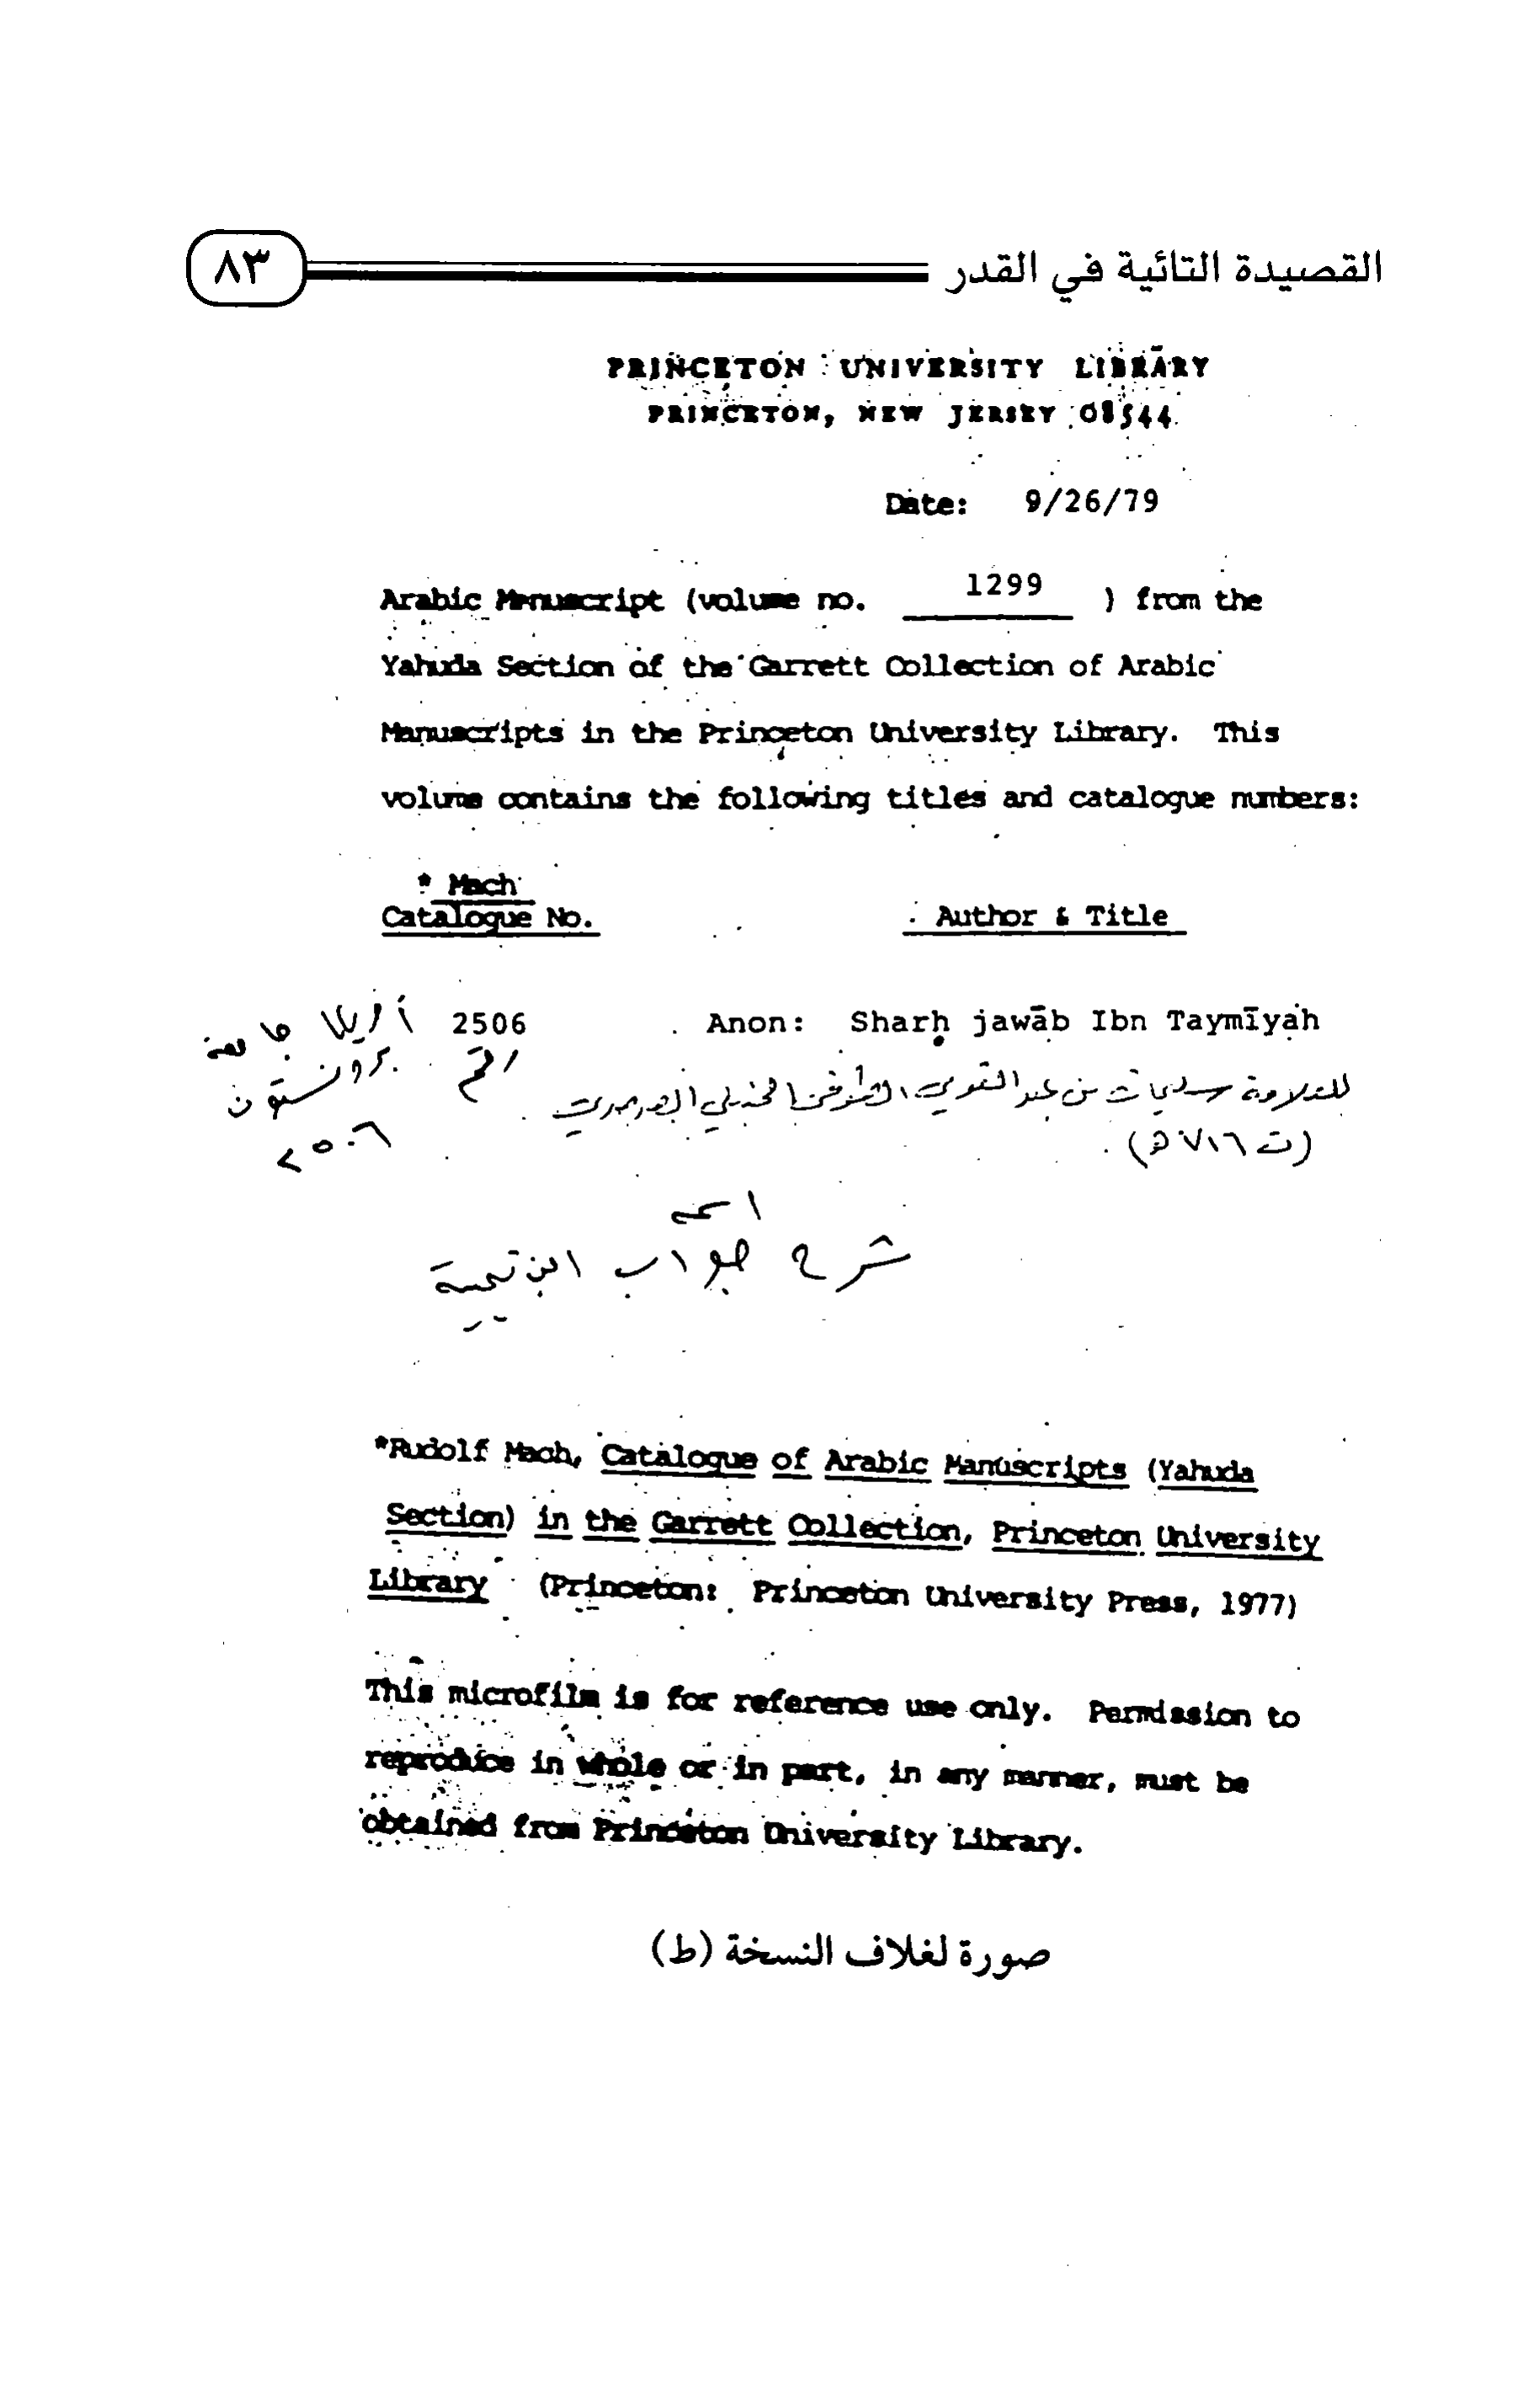 القصيدة التائية في القدر
٨٣
PRINCETON UNIVERSITY LIBRARY
PRINCETON, NEW JERSEY 08544
Date: 9/26/79
Arabic Manuscript (volume no. 1299 ) from the
Yahuda Section of the Garrett Collection of Arabic
Manuscripts in the Princeton University Library. This
volume contains the following titles and catalogue numbers:
* Mach
Catalogue No.
Author & Title
2506
Anon: Sharḥ jawāb Ibn Taymīyah
أمريكا جامعة
برونستون
٢٥٠٦
للعلامة سليمان بن عبد القوي الطوفي الحنبلي الصرصري
(ت ٧١٦ هـ).
شرح جواب ابن تيمية
*Rudolf Mach, Catalogue of Arabic Manuscripts (Yahuda
Section) in the Garrett Collection, Princeton University
Library (Princeton: Princeton University Press, 1977)
This microfilm is for reference use only. Permission to
reproduce in whole or in part, in any manner, must be
obtained from Princeton University Library.
صورة لغلاف النسخة (ط)